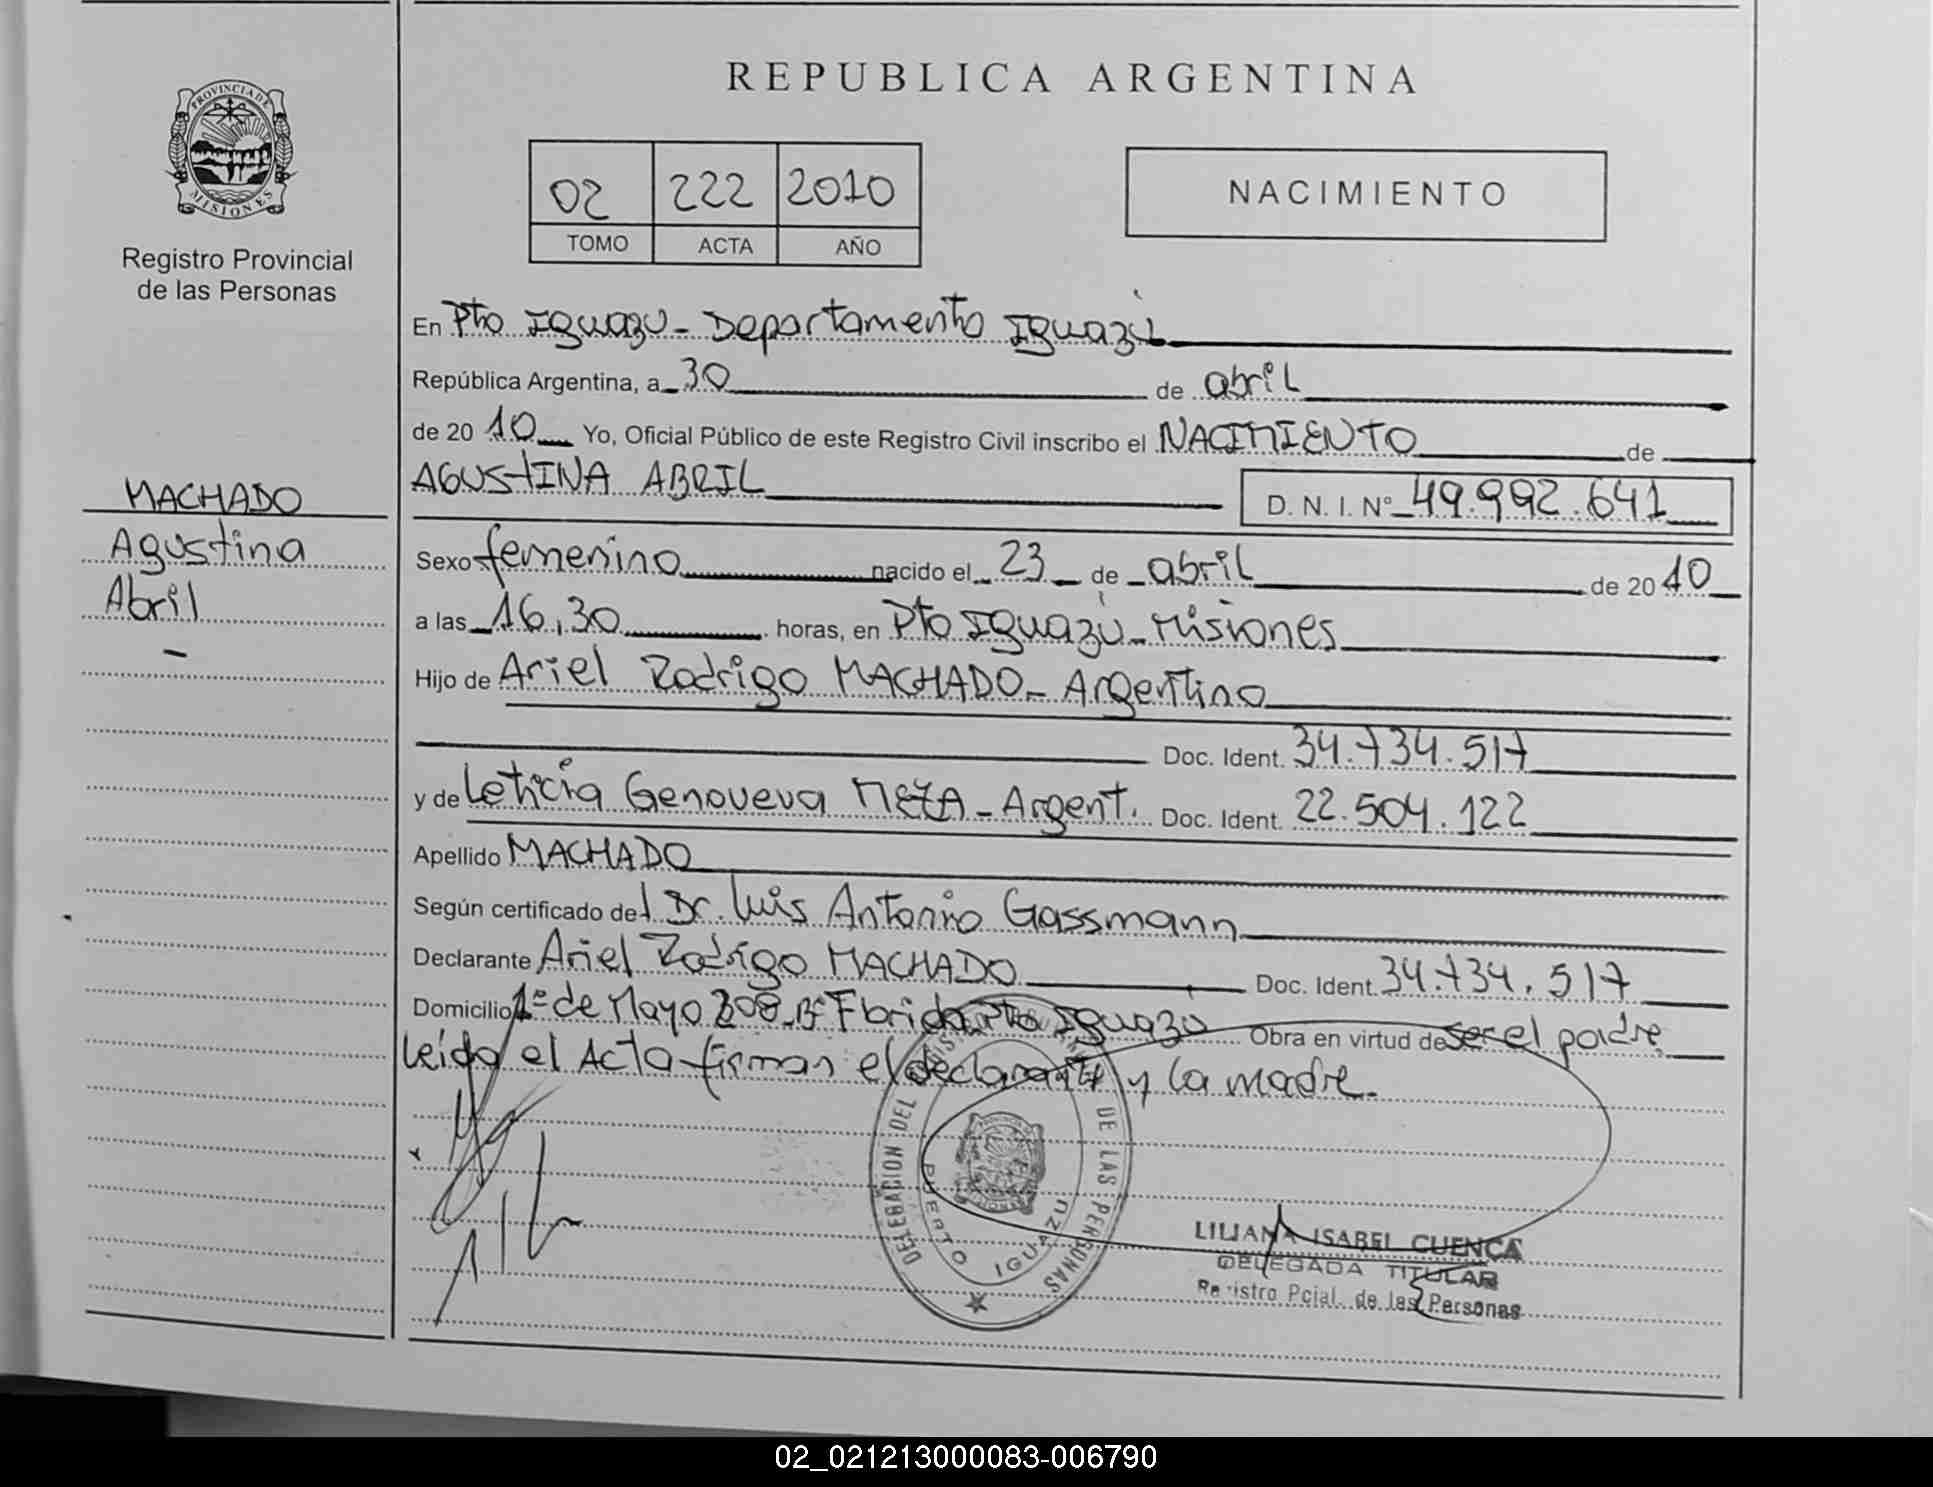 REPUBLICA ARGENTINA
PROVINCIA DE
MISIONES
Registro Provincial
de las Personas
02 222 2010
TOMO ACTA AÑO
NACIMIENTO
En Pto Iguazu - Departamento Iguazú
República Argentina, a 30 de abril
de 20 10 Yo, Oficial Público de este Registro Civil inscribo el NACIMIENTO de
AGUSTINA ABRIL D. N. I. Nº 49.992.641
MACHADO
Agustina
Abril
Sexo femenino nacido el 23 de abril de 20 10
a las 16,30 horas, en Pto Iguazú - Misiones
Hijo de Ariel Rodrigo MACHADO - Argentino
Doc. Ident. 34.734.517
y de Leticia Genoveva MEZA - Argent. Doc. Ident. 22.504.122
Apellido MACHADO
Según certificado del Dr. Luis Antonio Gassmann
Declarante Ariel Rodrigo MACHADO Doc. Ident. 34.734.517
Domicilio 1º de Mayo 308 Bº Pto Iguazu Obra en virtud de ser el padre
Leida el Acta firman el declarante y la madre.
DELEGACION DEL DE LAS PERSONAS
PUERTO IGUAZU
LILIANA ISABEL CUENCA
DELEGADA TITULAR
Registro Pcial. de las Personas
02_021213000083-006790